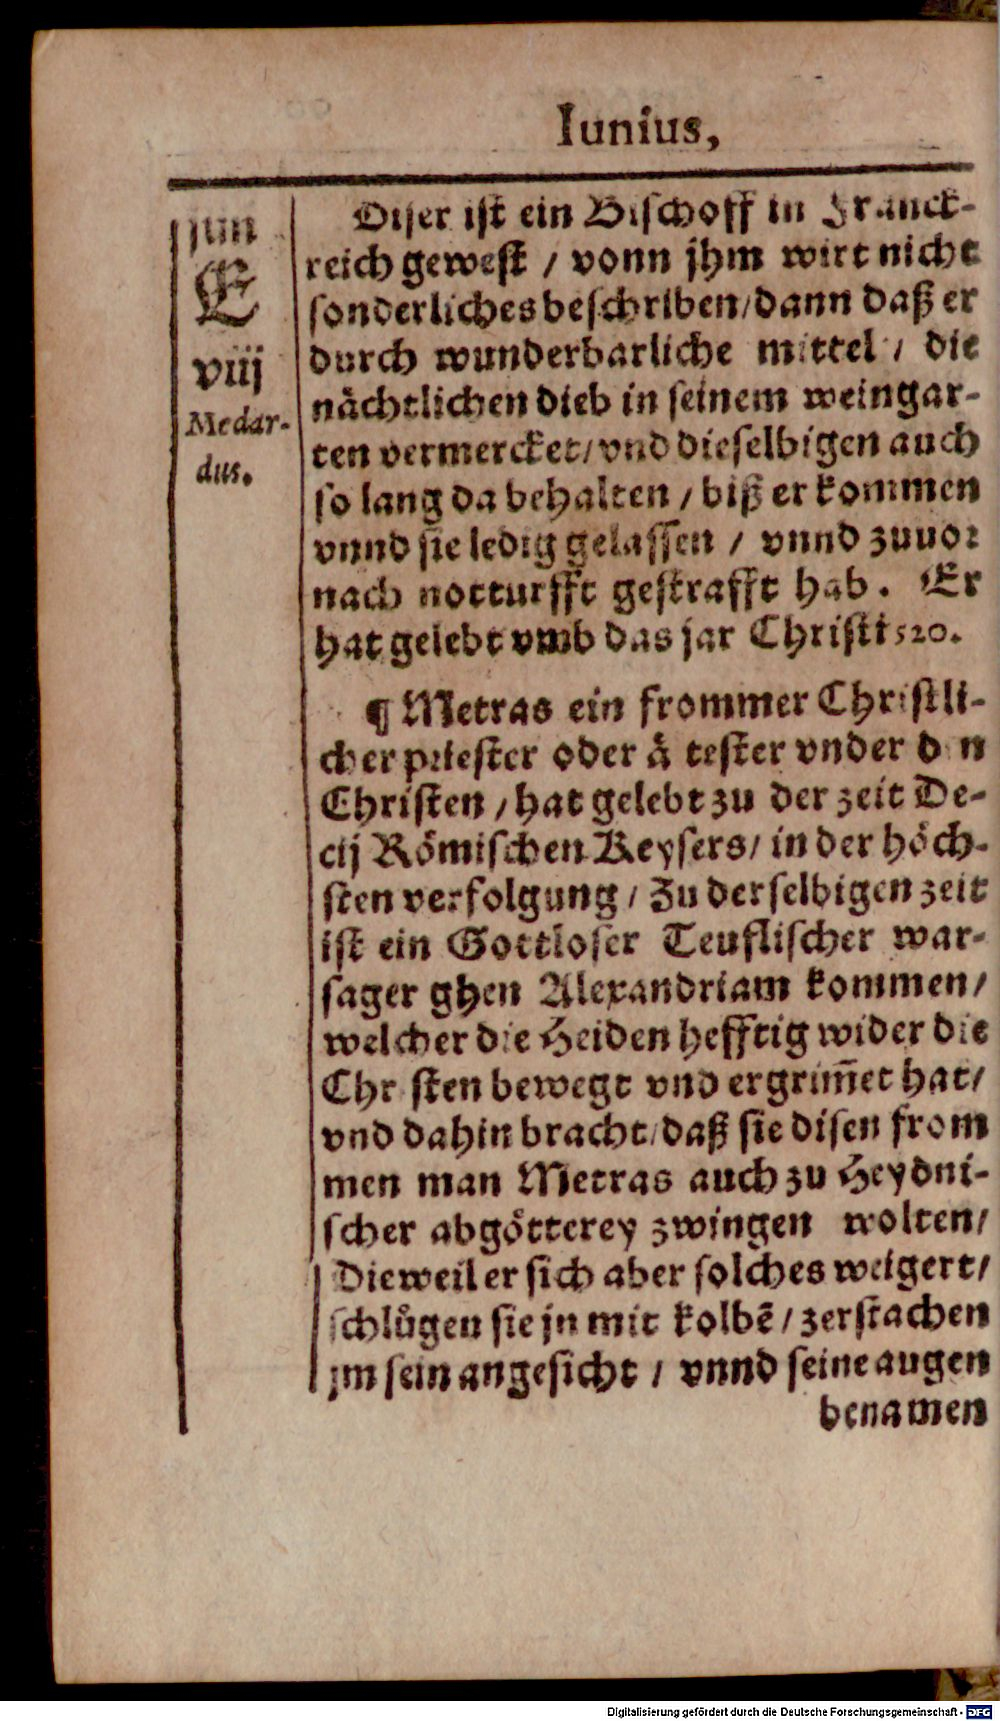 Iunius,
Jun
E
viij
Medar-
dus.
Diser ist ein Bischoff in Franck-
reich gewest / vonn jhm wirt nicht
sonderliches beschriben / dann daß er
durch wunderbarliche mittel / die
nächtlichen dieb in seinem weingar-
ten vermercket / vnd dieselbigen auch
so lang da behalten / biß er kommen
vnnd sie ledig gelassen / vnnd zuuor
nach notturfft gestrafft hab. Er
hat gelebt vmb das jar Christi 520.
¶ Metras ein frommer Christli-
cher priester oder ältester vnder den
Christen / hat gelebt zu der zeit De-
cij Römischen Keysers / in der höch-
sten verfolgung / Zu derselbigen zeit
ist ein Gottloser Teuflischer war-
sager ghen Alexandriam kommen /
welcher die Heiden hefftig wider die
Christen bewegt vnd ergrim̄et hat /
vnd dahin bracht / daß sie disen from
men man Metras auch zu Heydni-
scher abgötterey zwingen wolten /
Dieweil er sich aber solches weigert /
schlůgen sie jn mit kolbē / zerstachen
jm sein angesicht / vnnd seine augen
benamen
Digitalisierung gefördert durch die Deutsche Forschungsgemeinschaft - DFG